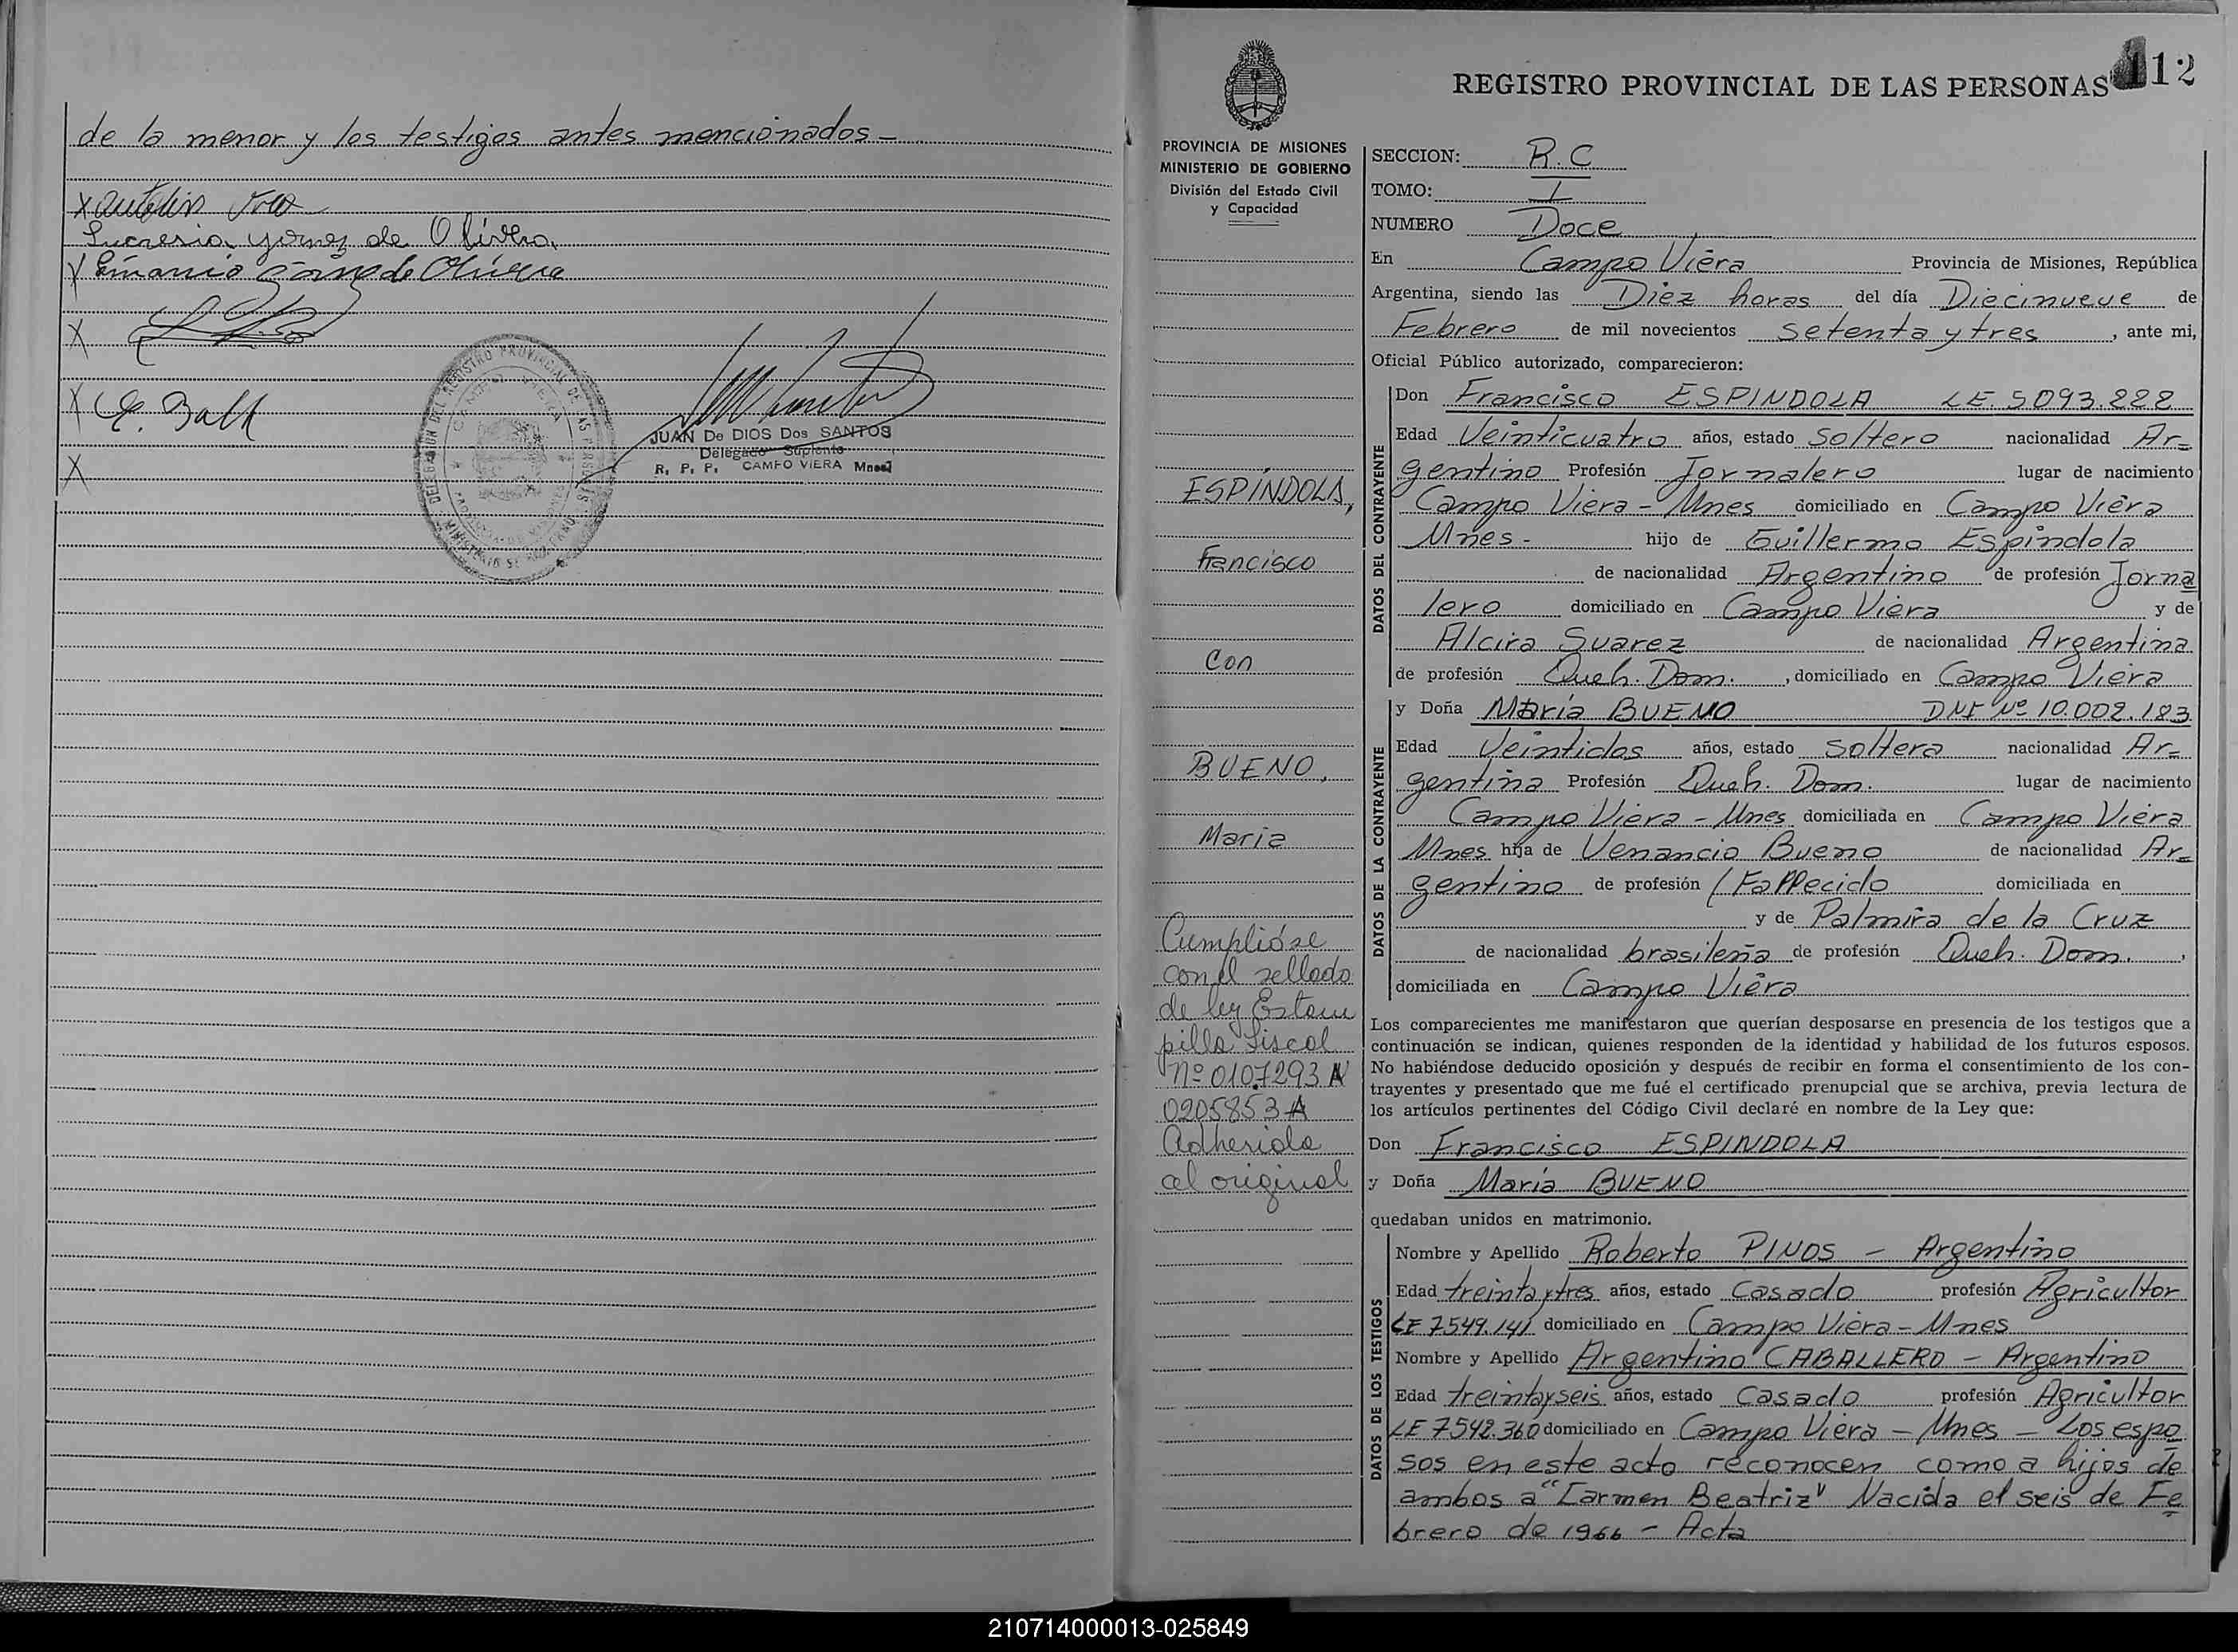 de la menor y los testigos antes mencionados -
X
Lucresia Gomez de Olivera
X
X
X E. Ball
X
DELEGACION DEL REGISTRO PROVINCIAL DE LAS PERSONAS
CAMPO VIERA
MINISTERIO DE GOBIERNO
JUAN De DIOS Dos SANTOS
Delegado Suplente
R. P. P. CAMPO VIERA Mnes
112
REGISTRO PROVINCIAL DE LAS PERSONAS
PROVINCIA DE MISIONES
MINISTERIO DE GOBIERNO
División del Estado Civil
y Capacidad
ESPÍNDOLA,
Francisco
Con
BUENO,
Maria
Cumplióse
con el sellado
de ley Estam
pilla fiscal
Nº 0107293 A
0205853 A
Adherida
al original
SECCION: R.C
TOMO: I
NUMERO Doce
En Campo Viera Provincia de Misiones, República
Argentina, siendo las Diez horas del día Diecinueve de
Febrero de mil novecientos setenta y tres, ante mi,
Oficial Público autorizado, comparecieron:
DATOS DEL CONTRAYENTE
Don Francisco ESPINDOLA LE. 5093.222
Edad Veinticuatro años, estado soltero nacionalidad Ar=
gentino Profesión Jornalero lugar de nacimiento
Campo Viera - Mnes domiciliado en Campo Viera
Mnes - hijo de Guillermo Espindola
de nacionalidad Argentino de profesión Jorna
lero domiciliado en Campo Viera y de
Alcira Suarez de nacionalidad Argentina
de profesión Queh. Dom., domiciliado en Campo Viera
DATOS DE LA CONTRAYENTE
y Doña María BUENO DNI Nº 10.002.183
Edad Veintidos años, estado soltera nacionalidad Ar=
gentina Profesión Queh. Dom. lugar de nacimiento
Campo Viera - Mnes domiciliada en Campo Viera
Mnes hija de Venancio Bueno de nacionalidad Ar=
gentino de profesión (Fallecido domiciliada en
y de Palmira de la Cruz
de nacionalidad brasileña de profesión Queh. Dom.,
domiciliada en Campo Viera
Los comparecientes me manifestaron que querían desposarse en presencia de los testigos que a
continuación se indican, quienes responden de la identidad y habilidad de los futuros esposos.
No habiéndose deducido oposición y después de recibir en forma el consentimiento de los con-
trayentes y presentado que me fué el certificado prenupcial que se archiva, previa lectura de
los artículos pertinentes del Código Civil declaré en nombre de la Ley que:
Don Francisco ESPINDOLA
y Doña María BUENO
quedaban unidos en matrimonio.
DATOS DE LOS TESTIGOS
Nombre y Apellido Roberto PINOS - Argentino
Edad treinta y tres años, estado Casado profesión Agricultor
LE 7549.141 domiciliado en Campo Viera - Mnes
Nombre y Apellido Argentino CABALLERO - Argentino
Edad treinta y seis años, estado Casado profesión Agricultor
LE 7542.360 domiciliado en Campo Viera - Mnes - Los espo
sos en este acto reconocen como a hijos de
ambos a "Carmen Beatriz" Nacida el seis de Fe
brero de 1966 - Acta
210714000013-025849